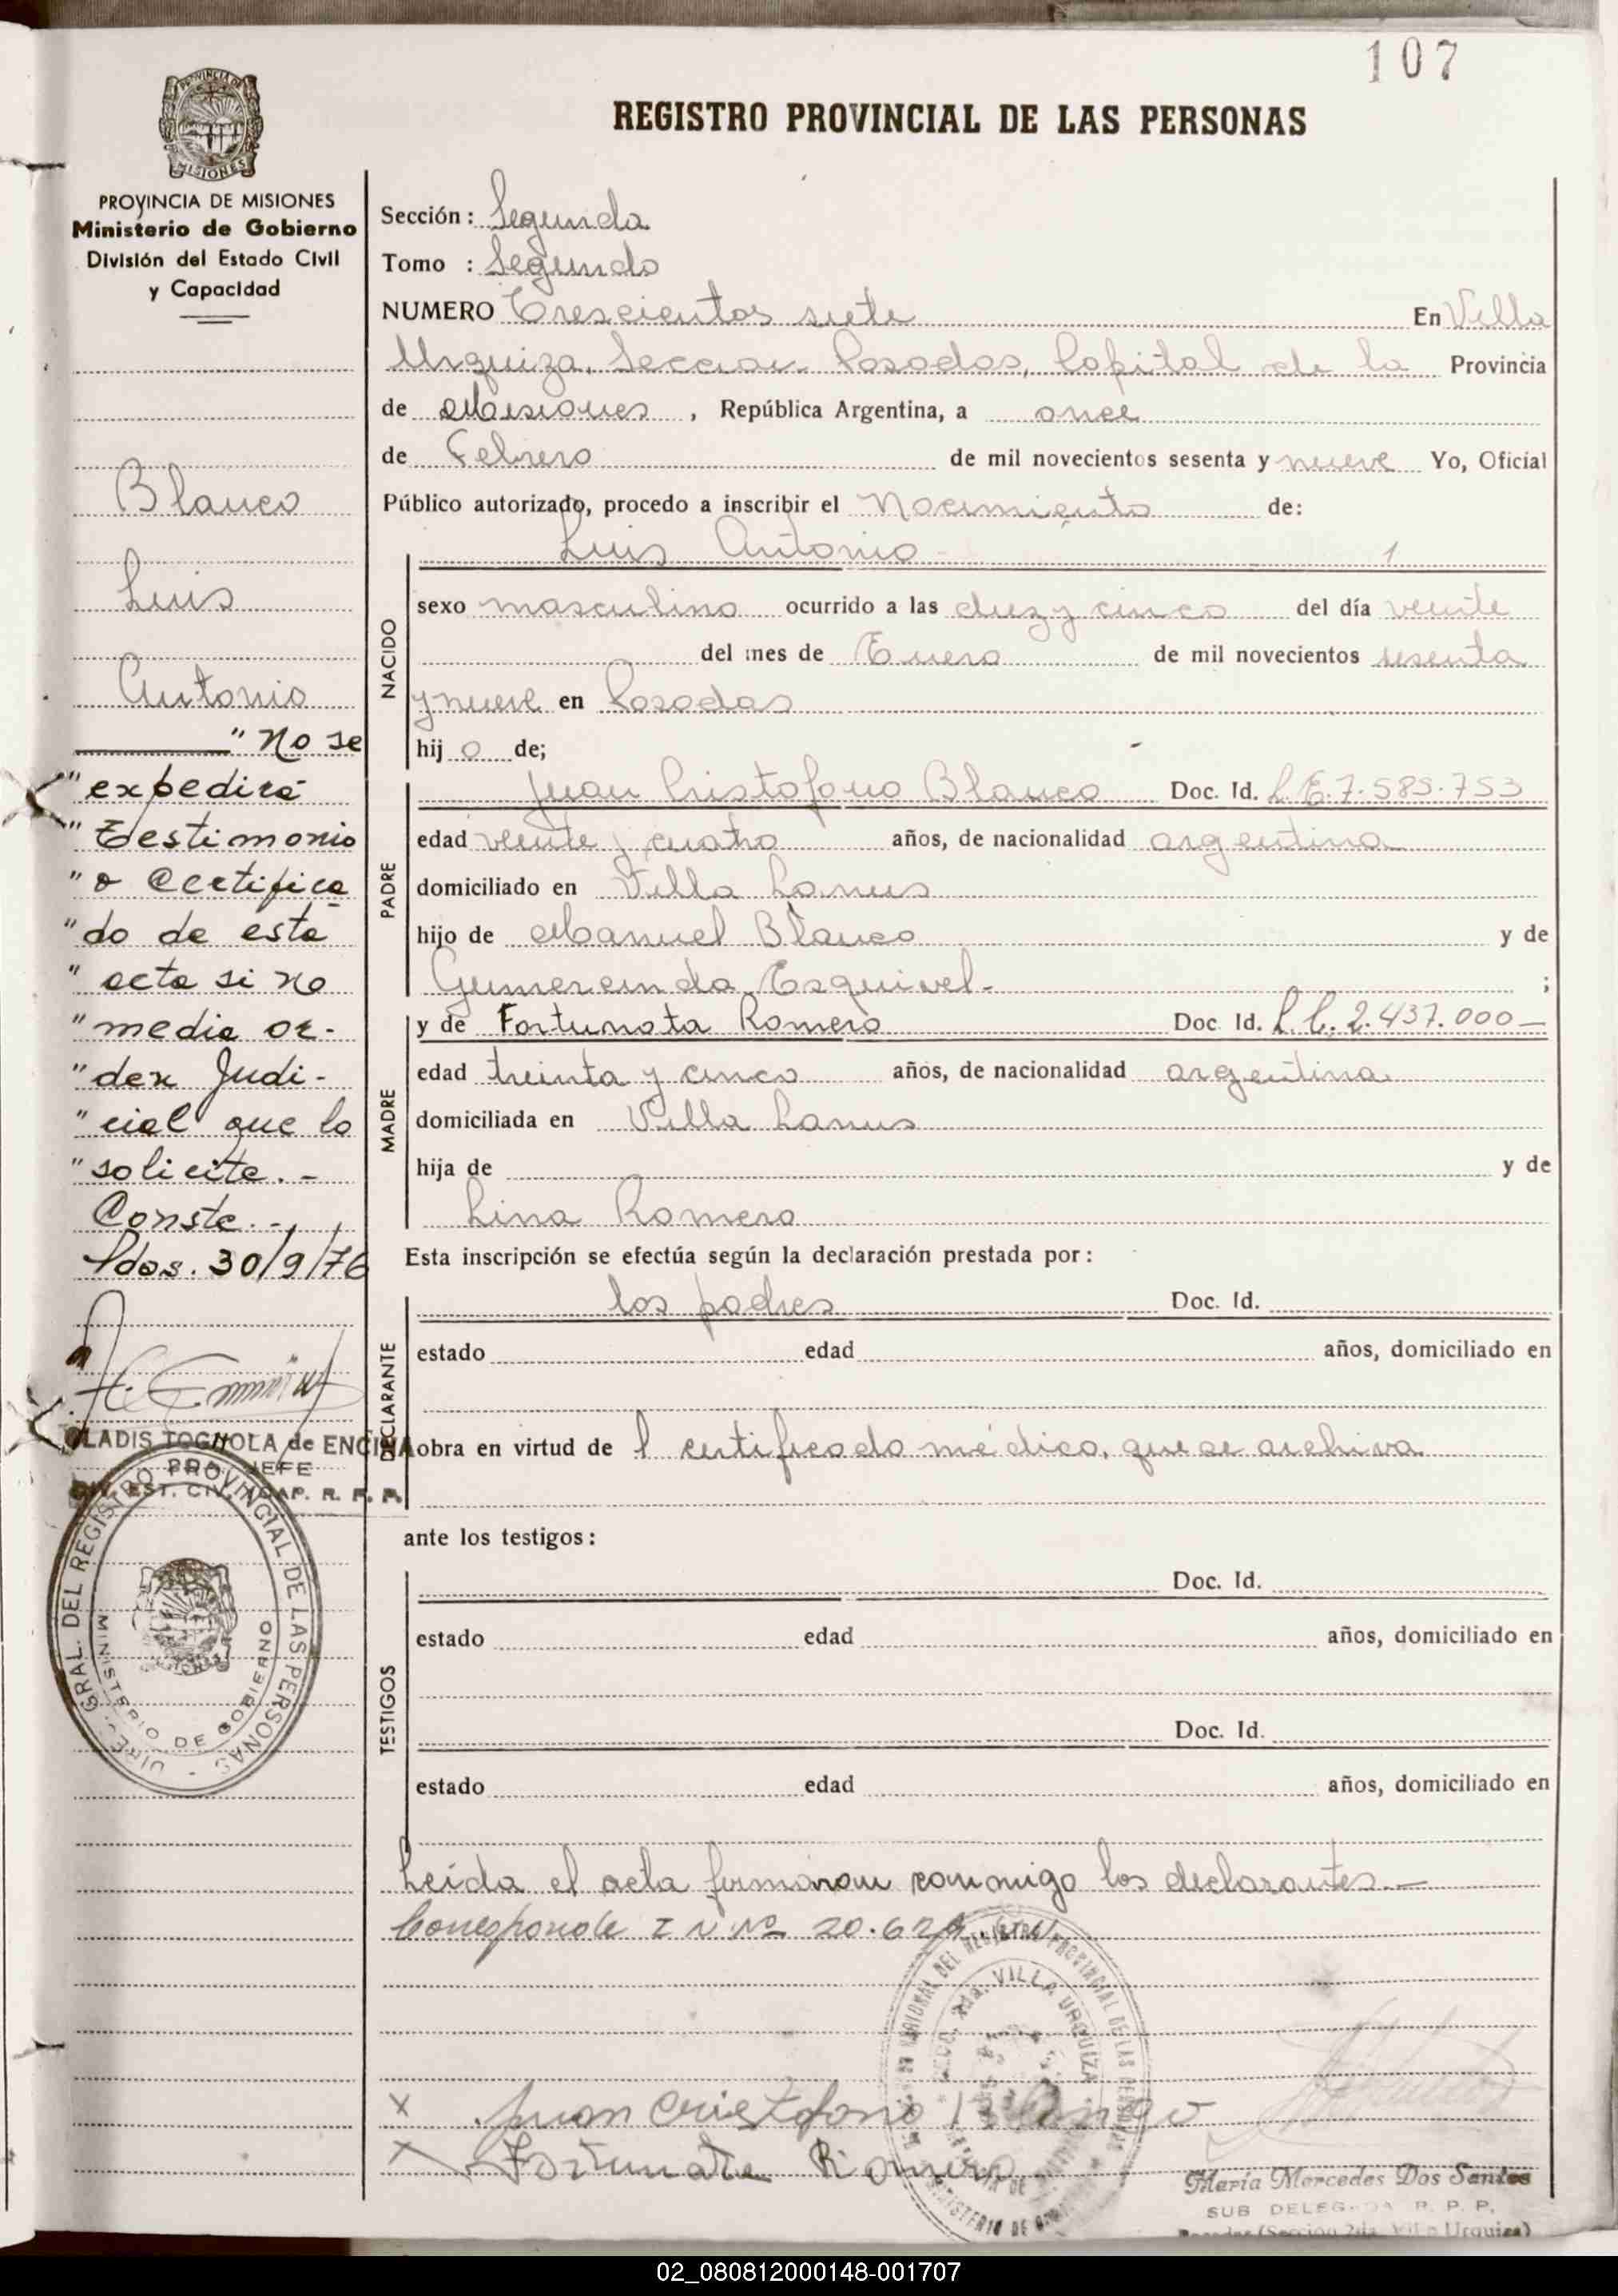 107
PROVINCIA DE
MISIONES
REGISTRO PROVINCIAL DE LAS PERSONAS
PROVINCIA DE MISIONES
Ministerio de Gobierno
División del Estado Civil
y Capacidad
Blanco
Luis
Antonio
" No se
" expedirá
" Testimonio
" o Certifica
" do de esta
" acta si no
" media or-
" den Judi-
" cial que lo
" solicite. -
Conste. -
Pdas. 30/9/76
GLADIS TOGNOLA de ENCINA
PRO JEFE
DIV. EST. CIV. Y CAP. R. P. P.
DIREC. GRAL. DEL REGISTRO PROVINCIAL DE LAS PERSONAS -
MINISTERIO DE GOBIERNO
Sección: Segunda
Tomo : Segundo
NUMERO Trescientos siete En Villa
Urquiza, Seccion Posadas, Capital de la Provincia
de Misiones , República Argentina, a once
de Febrero de mil novecientos sesenta y nueve Yo, Oficial
Público autorizado, procedo a inscribir el Nacimiento de:
NACIDO
Luis Antonio 1
sexo masculino ocurrido a las diez y cinco del día veinte
del mes de Enero de mil novecientos sesenta
y nueve en Posadas
hij o de;
PADRE
Juan Cristofono Blanco Doc. Id. L.E. 7.585.753
edad veinte y cuatro años, de nacionalidad argentina
domiciliado en Villa Lanus
hijo de Manuel Blanco y de
Gumercinda Esquivel. ;
MADRE
y de Fortunata Romero Doc. Id. L.C. 2.437.000 —
edad treinta y cinco años, de nacionalidad argentina
domiciliada en Villa Lanus
hija de y de
Lina Romero
Esta inscripción se efectúa según la declaración prestada por:
DECLARANTE
los padres Doc. Id.
estado edad años, domiciliado en
obra en virtud de l certificado médico, que se archiva
ante los testigos:
TESTIGOS
Doc. Id.
estado edad años, domiciliado en
Doc. Id.
estado edad años, domiciliado en
Leída el acta firmaron conmigo los declarantes. —
Corresponde I N Nº 20.629.
VILLA URQUIZA
x Juan Cristofono Blanco
x Fortunata Romero
María Mercedes Dos Santos
SUB DELEGADA R. P. P.
Posadas (Seccion 2da. Villa Urquiza)
02_080812000148-001707